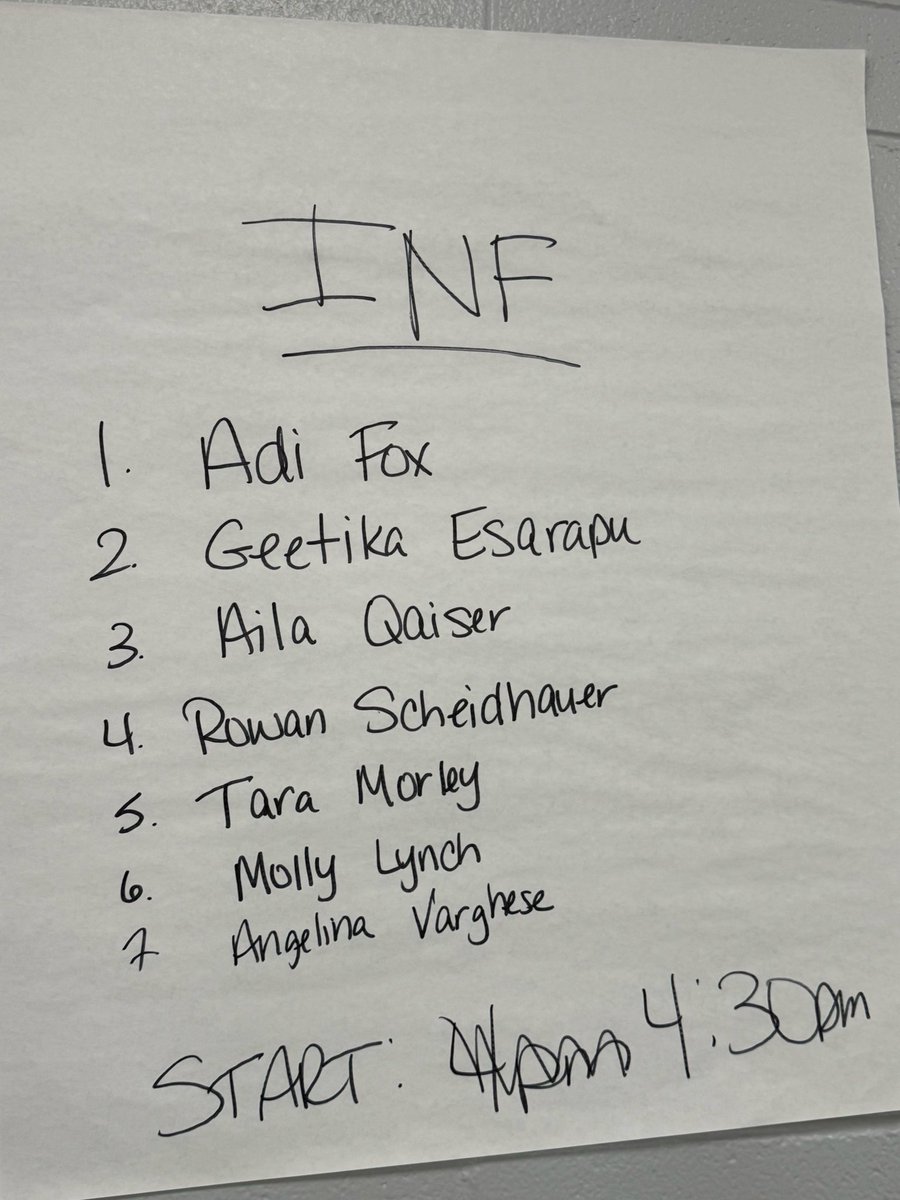 INF
1. Adi Fox
2. Geetika Esarapu
3. Aila Qaiser
4. Rowan Scheidhauer
5. Tara Morley
6. Molly Lynch
7 Angelina Varghese
START: 4pm 4:30pm